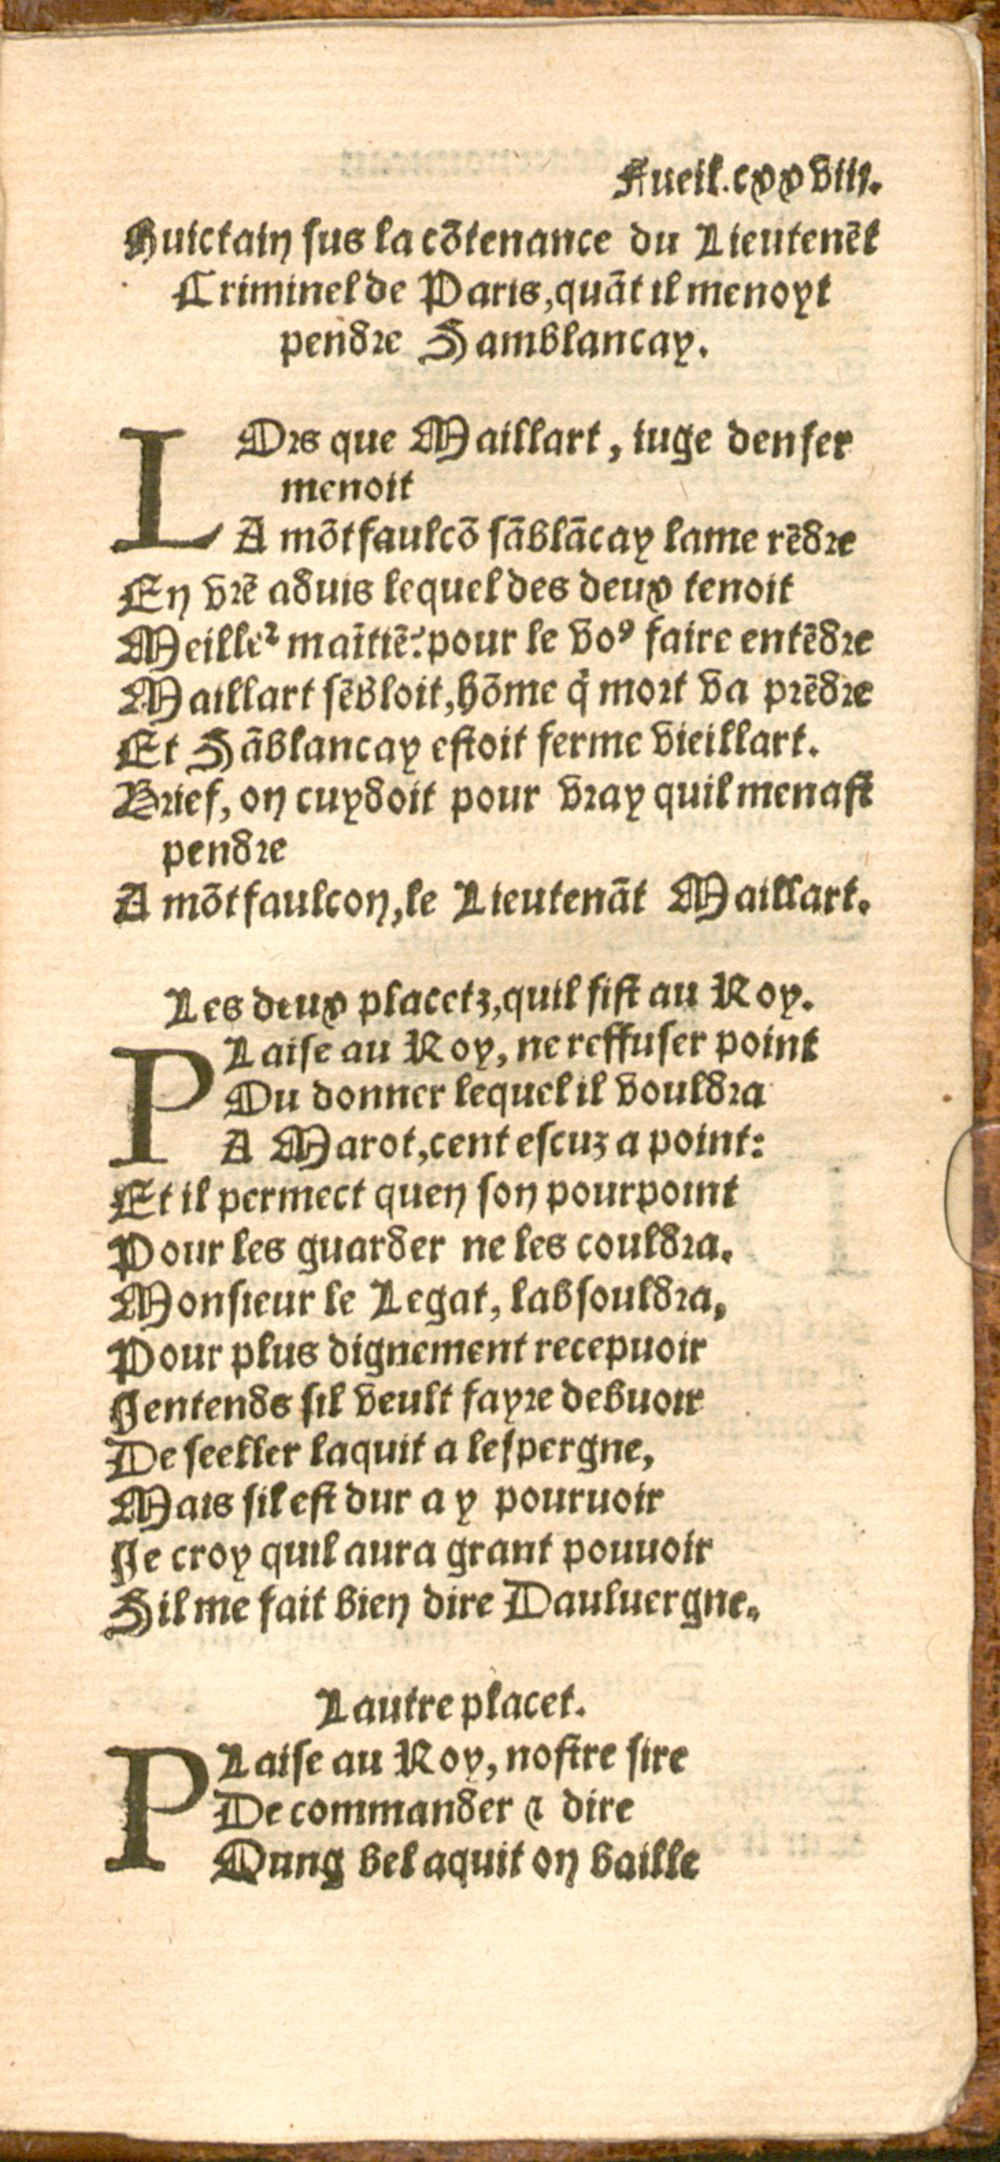 Fueil.cxxviii.
Huictain sus la cõtenance du Lieutenẽt
Criminel de Paris, quãt il menoyt
pendre Samblancay.
LOrs que Maillart, iuge denfer
menoit
A mõtfaulcõ sãblãcay lame rẽdre
En vrẽ aduis lequel des deux tenoit
Meilleꝛ maĩtiẽ? pour le voꝰ faire entẽdre
Maillart sẽbloit, hõme q̃ mort va prẽdre
Et Sãblancay estoit ferme vieillart.
Brief, on cuydoit pour vray quil menast
pendre
A mõtfaulcon, le Lieutenãt Maillart.
Les deux placetz, quil fist au Roy.
PLaise au Roy, ne reffuser point
Ou donner lequel il vouldra
A Marot, cent escuz a point:
Et il permect quen son pourpoint
Pour les guarder ne les couldra.
Monsieur le Legat, labsouldra,
Pour plus dignement recepuoir
Jentends sil veult fayre debuoir
De seeller laquit a lespergne,
Mais sil est dur a y pouruoir
Je croy quil aura grant pouuoir
Sil me fait bien dire Dauluergne.
Lautre placet.
PLaise au Roy, nostre sire
De commander ⁊ dire
Qung bel aquit on baille